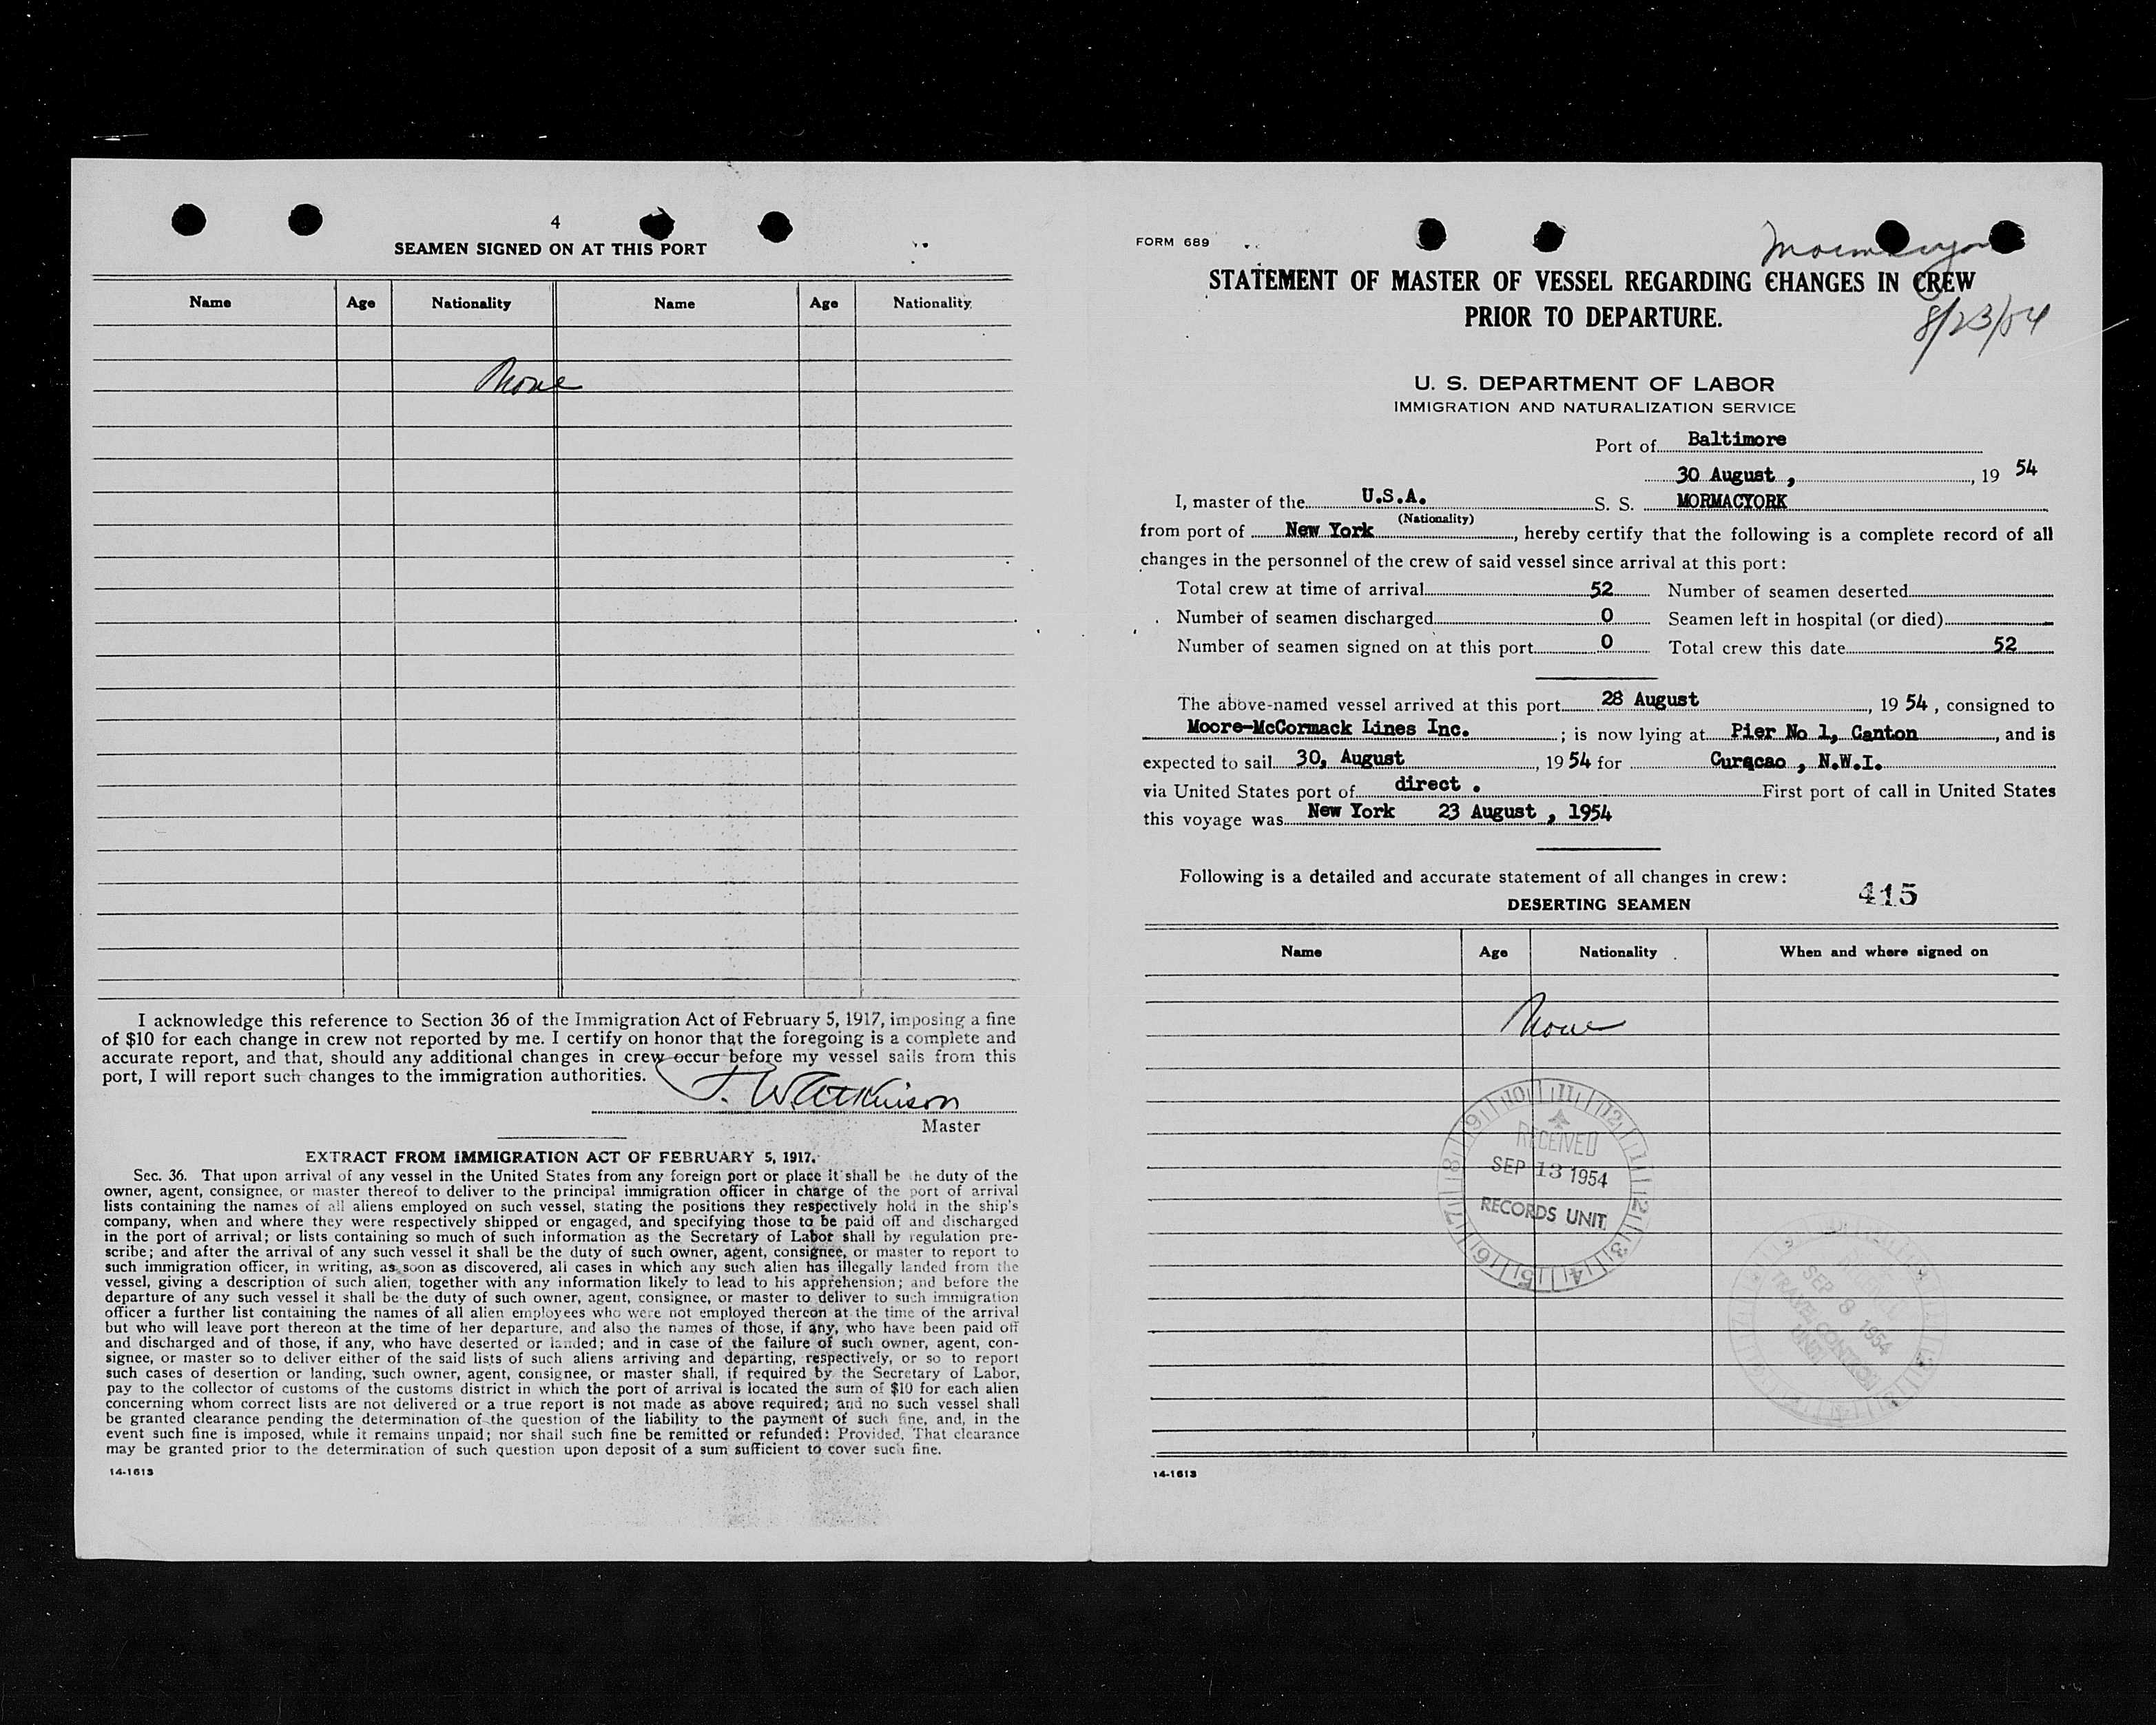 4
SEAMEN SIGNED ON AT THIS PORT
Name Age Nationality Name Age Nationality
None
I acknowledge this reference to Section 36 of the Immigration Act of February 5, 1917, imposing a fine
of $10 for each change in crew not reported by me. I certify on honor that the foregoing is a complete and
accurate report, and that, should any additional changes in crew occur before my vessel sails from this
port, I will report such changes to the immigration authorities.
J. W. Atkinson
Master
EXTRACT FROM IMMIGRATION ACT OF FEBRUARY 5, 1917.
Sec. 36. That upon arrival of any vessel in the United States from any foreign port or place it shall be the duty of the
owner, agent, consignee, or master thereof to deliver to the principal immigration officer in charge of the port of arrival
lists containing the names of all aliens employed on such vessel, stating the positions they respectively hold in the ship's
company, when and where they were respectively shipped or engaged, and specifying those to be paid off and discharged
in the port of arrival; or lists containing so much of such information as the Secretary of Labor shall by regulation pre-
scribe; and after the arrival of any such vessel it shall be the duty of such owner, agent, consignee, or master to report to
such immigration officer, in writing, as soon as discovered, all cases in which any such alien has illegally landed from the
vessel, giving a description of such alien, together with any information likely to lead to his apprehension; and before the
departure of any such vessel it shall be the duty of such owner, agent, consignee, or master to deliver to such immigration
officer a further list containing the names of all alien employees who were not employed thereon at the time of the arrival
but who will leave port thereon at the time of her departure, and also the names of those, if any, who have been paid off
and discharged and of those, if any, who have deserted or landed; and in case of the failure of such owner, agent, con-
signee, or master so to deliver either of the said lists of such aliens arriving and departing, respectively, or so to report
such cases of desertion or landing, such owner, agent, consignee, or master shall, if required by the Secretary of Labor,
pay to the collector of customs of the customs district in which the port of arrival is located the sum of $10 for each alien
concerning whom correct lists are not delivered or a true report is not made as above required; and no such vessel shall
be granted clearance pending the determination of the question of the liability to the payment of such fine, and, in the
event such fine is imposed, while it remains unpaid; nor shall such fine be remitted or refunded: Provided, That clearance
may be granted prior to the determination of such question upon deposit of a sum sufficient to cover such fine.
14-1613
FORM 689
STATEMENT OF MASTER OF VESSEL REGARDING CHANGES IN CREW
PRIOR TO DEPARTURE.
8/23/54
U. S. DEPARTMENT OF LABOR
IMMIGRATION AND NATURALIZATION SERVICE
Port of Baltimore
30 August , , 19 54
I, master of the U.S.A. S. S. MORMACYORK
(Nationality)
from port of New York , hereby certify that the following is a complete record of all
changes in the personnel of the crew of said vessel since arrival at this port:
Total crew at time of arrival 52 Number of seamen deserted
Number of seamen discharged 0 Seamen left in hospital (or died)
Number of seamen signed on at this port 0 Total crew this date 52
The above-named vessel arrived at this port 28 August , 19 54 , consigned to
Moore-McCormack Lines Inc. ; is now lying at Pier No 1, Canton , and is
expected to sail 30, August , 19 54 for Curacao , N.W.I.
via United States port of direct . First port of call in United States
this voyage was New York 23 August , 1954
Following is a detailed and accurate statement of all changes in crew:
DESERTING SEAMEN 415
Name Age Nationality When and where signed on
None
RECEIVED
SEP 13 1954
RECORDS UNIT
SEP 8 1954
TRAVEL CONTROL
UNIT
14-1613